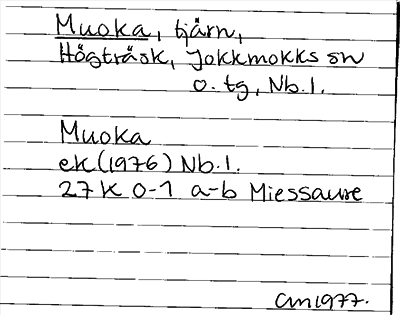 Muoka, tjärn,
Högträsk, Jokkmokks sn
o. tg, Nb.l.
Muoka
ek (1976) Nb.l.
27 K 0-1 a-b Miessaure
CM 1977.